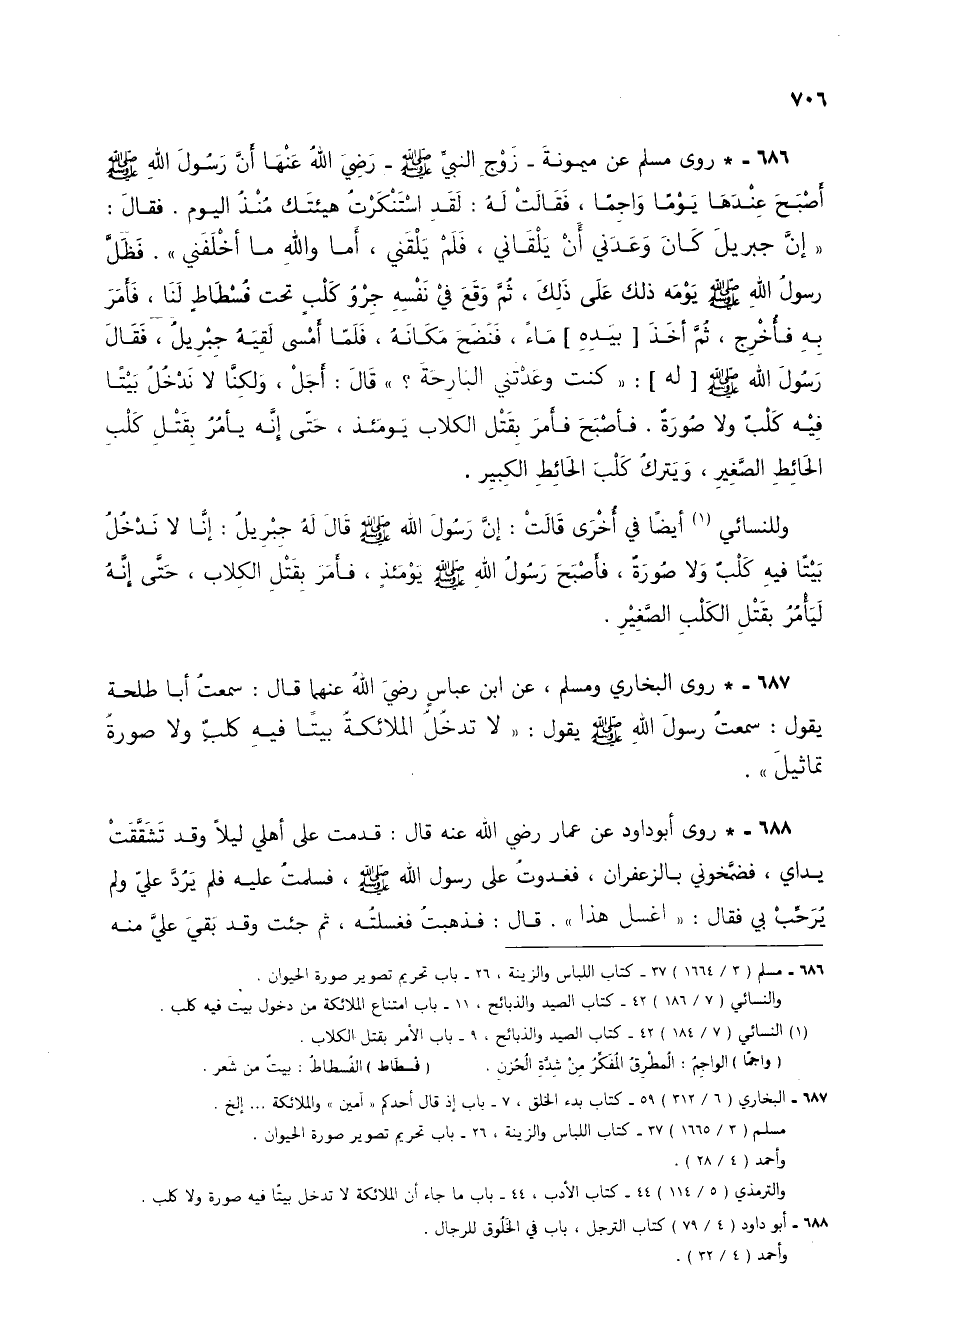 ٧٠٦
٦٨٦ - * روى مسلم عن ميمونةَ - زَوْجِ النبيِّ ﷺ - رَضِيَ اللهُ عَنْهَا أَنَّ رَسُولَ اللهِ ﷺ
أَصْبَحَ عِنْدَهَا يَوْمًا وَاجِمًا ، فَقَالَتْ لَهُ : لَقَدِ اسْتَنْكَرْتُ هيئتَك مُنْذُ اليوم . فقالَ :
« إنَّ جبريلَ كَانَ وَعَدَني أَنْ يَلْقَاني ، فَلَمْ يَلْقَني ، أَما واللهِ ما أخْلَفَني » . فَظَلَّ
رسولُ اللهِ ﷺ يَوْمَه ذلك عَلَى ذَلِكَ ، ثُمَّ وَقَعَ في نَفْسِهِ جِرْوُ كَلْبٍ تحت فُسْطَاطٍ لَنَا ، فَأَمَرَ
بِهِ فَأُخْرِج ، ثُمَّ أَخَذَ [ بِيَدِهِ ] مَاءً ، فَنَضَحَ مَكَانَهُ ، فَلَمَّا أَمْسى لَقِيَهُ جبْرِيلُ ، فَقَالَ
رَسُولُ اللهِ ﷺ [ له ] : « كنت وعَدْتني البَارِحَةَ ؟ » قَالَ : أَجَلْ ، وَلكِنَّا لا نَدْخُلُ بَيْتًا
فِيْهِ كَلْبٌ ولا صُورَةٌ . فأصْبَحَ فأمرَ بقَتْل الكلاب يومئذ ، حَتَّى إنَّه يأمُرُ بقَتْل كَلْب
الحَائِطِ الصَّغِيرِ ، وَيَتركُ كَلْبَ الحَائِطِ الكبِير .
وللنسائي (١) أيضًا في أُخْرَى قَالَتْ : إنَّ رَسُولَ الله ﷺ قَالَ لَهُ جبْرِيلُ : إنَّا لا نَدْخُلُ
بَيْتًا فيهِ كَلْبٌ وَلا صُورَةٌ ، فأَصْبَحَ رَسُولُ اللهِ ﷺ يَوْمَئذٍ ، فأَمَرَ بِقَتْلِ الكلاب ، حَتَّى إنَّهُ
لَيَأْمُرُ بقَتْلِ الكَلْبِ الصَّغِيْرِ .
٦٨٧ - * روى البخاري ومسلم ، عن ابن عباسٍ رضيَ اللهُ عنهما قال : سمعتُ أبا طلحة
يقول : سمعتُ رسولَ اللهِ ﷺ يقول : « لا تدخُلُ الملائكةُ بيتًا فيه كلبٌ ولا صورةُ
تماثيلَ » .
٦٨٨ - * روى أبوداود عن عمار رضي الله عنه قال : قدمت على أهلي ليلاً وقد تَشَقَّقَتْ
يداي ، فضمَّخوني بالزعفران ، فغدوتُ على رسول الله ﷺ ، فسلمتُ عليه فلم يَرُدَّ عليّ ولم
يُرَحِّبْ بي فقال : « اغسل هذا » . قال : فذهبتُ فغسلتُه ، ثم جئت وقد بَقيَ عليَّ منه
٦٨٦ - مسلم ( ٣ / ١٦٦٤ ) ٣٧ - كتاب اللباس والزينة ، ٢٦ - باب تحريم تصوير صورة الحيوان .
والنسائي ( ٧ / ١٨٦ ) ٤٢ - كتاب الصيد والذبائح ، ١١ - باب امتناع الملائكة من دخول بيت فيه كلب .
(١) النسائي ( ٧ / ١٨٤ ) ٤٢ - كتاب الصيد والذبائح ، ٩ - باب الأمر بقتل الكلاب .
( واجمًا ) الواجِمُ : المطْرِقُ المُفَكِّرُ مِنْ شِدَّةِ الحُزنِ . ( فُسطاط ) الفُسطاطُ : بيتٌ من شَعر .
٦٨٧ - البخاري ( ٦ / ٣١٢ ) ٥٩ - كتاب بدء الخلق ، ٧ - باب إذ قال أحدكم « آمين » والملائكة ... إلخ .
مسلم ( ٣ / ١٦٦٥ ) ٣٧ - كتاب اللباس والزينة ، ٢٦ - باب تحريم تصوير صورة الحيوان .
وأحمد ( ٤ / ٢٨ ) .
والترمذي ( ٥ / ١١٤ ) ٤٤ - كتاب الأدب ، ٤٤ - باب ما جاء أن الملائكة لا تدخل بيتًا فيه صورة ولا كلب .
٦٨٨ - أبو داود ( ٤ / ٧٩ ) كتاب الترجل ، باب في الخَلُوق للرجال .
وأحمد ( ٤ / ٣٢ ) .